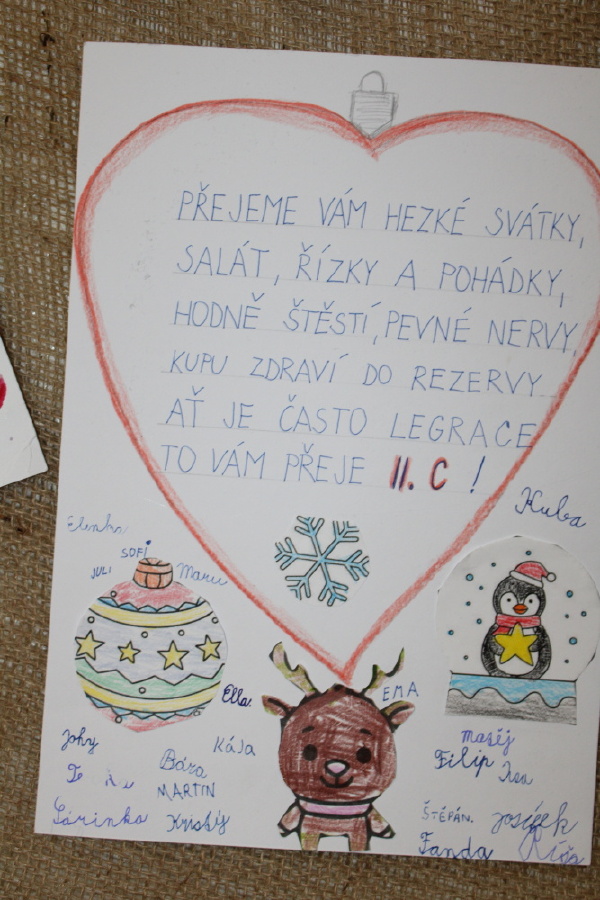 PŘEJEME VÁM HEZKÉ SVÁTKY,
SALÁT, ŘÍZKY A POHÁDKY,
HODNĚ ŠTĚSTÍ, PEVNÉ NERVY,
KUPU ZDRAVÍ DO REZERVY
AŤ JE ČASTO LEGRACE
TO VÁM PŘEJE II. C !
Kuba
Elenka
SOFI
JULI
Ella
EMA
KÁJA
Bára
MARTIN
Kristýj
Matěj
Filip
ŠTĚPÁN.
Josífek
Fanda